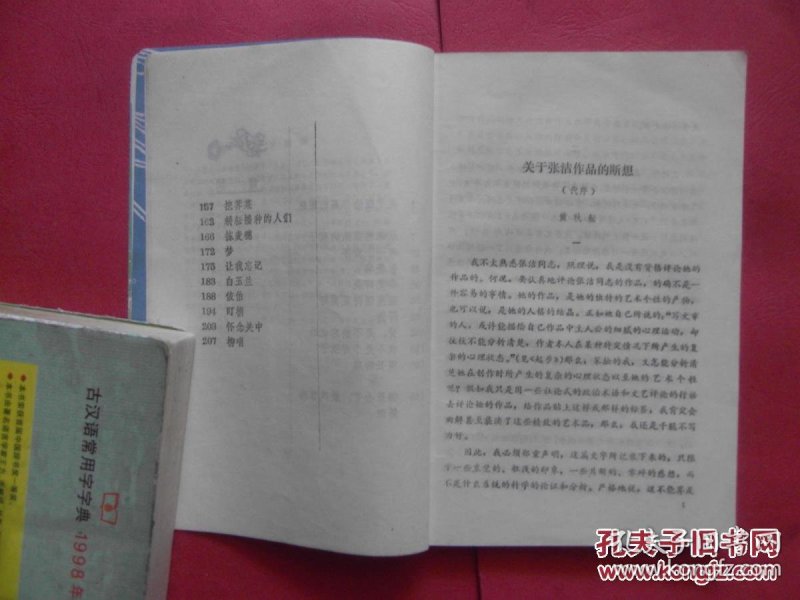 157 挖荠菜
163 舢舨播种的人们
166 拣麦穗
172 梦
175 让我忘记
183 白玉兰
188 依怙
194 盯梢
203 怀念关中
207 柳眉
关于张洁作品的断想
（代序）
黄秋耘
一
我不太熟悉张洁同志，照理说，我是没有资格评论她的
作品的。何况，要认真地评论张洁同志的作品，的确不是一
件容易的事情。她的作品，是她的独特的艺术个性的产物，
也可以说，是她的人格的结晶。正如她自己所说的，“写文章
的人，或许能描绘自己作品中主人公的细腻的心理活动，却
往往不能分析清楚，作者本人在某种特定情况下所产生的复
杂的心理状态。”(见《起步》)那么，笨拙的我，又怎能分析清
楚她在创作时所产生的复杂的心理状态以至她的艺术个性
呢？假如我只是用一些让论式的政治术语和文艺评论的行话
去评论她的作品，给作品贴上这样或那样的标签，我肯定会
曲解甚且亵渎了这些精致的艺术品，那么，我还是干脆不写
为好。
因此，我必须郑重声明，这篇文字所记录下来的，只限
于一些直觉的、粗浅的印象，一些片断的、零碎的感想，而
不是什么系统的科学的论证和分析。严格地说，这不能算是
1
古汉语常用字字典
1998年
孔夫子旧书网
www.kongfz.com